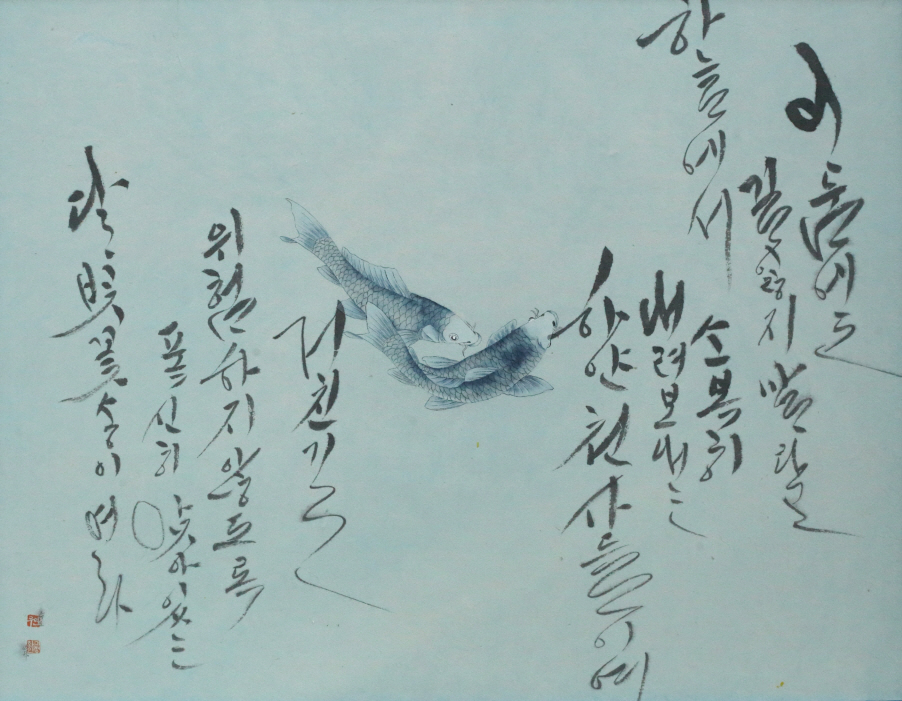 어둠에도
길 잃지 말라고
하늘에서
소복히
내려보내는
하얀 천사들이
거친 길
위험하지 않도록
폭신히 앉아있는
달빛 꽃송이여라